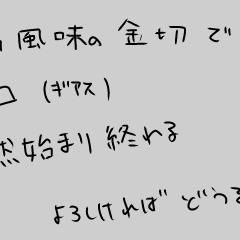 風味の金切で
コ(ギアス)
然始まり終わる
よろしければどうぞ